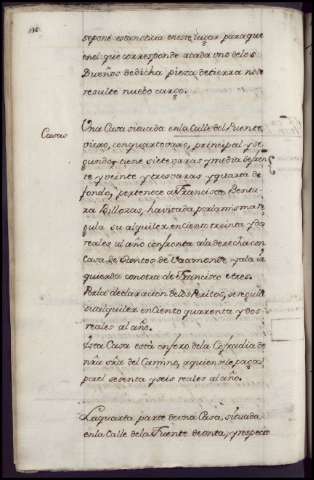 sepone estanotizia eneste lugar, paraque
enel que corresponde acada uno delos
Dueños dedicha pieza detierra no se
resulte nuebo cargo.
Casas
Una Casa situada enla Calle del Puente
viejo, con quarto vajo, principal, y se
gundo: tiene siete varas y media defren
te y veinte y tres varas y quarta de
fondo, pertenece a Francisco Bentu
ra Billoras, havitada por la misma re
gula su alquiler en ciento treinta y dos
reales al año confronta ala derecha con
Casa de Santos de Vaamonde y ala iz
quierda con otra de Francisco
Por la declaracion delos Peritos, se regula
su alquiler en Ciento quarenta y dos
reales al año.
Esta Casa està en fozo dela Cofradia de
nrâ srâ del Carmen, a quien se le paga
por el sesenta y seis reales al año.
La quarta parte de una Casa, situada
enla Calle dela Fuente de y respecto